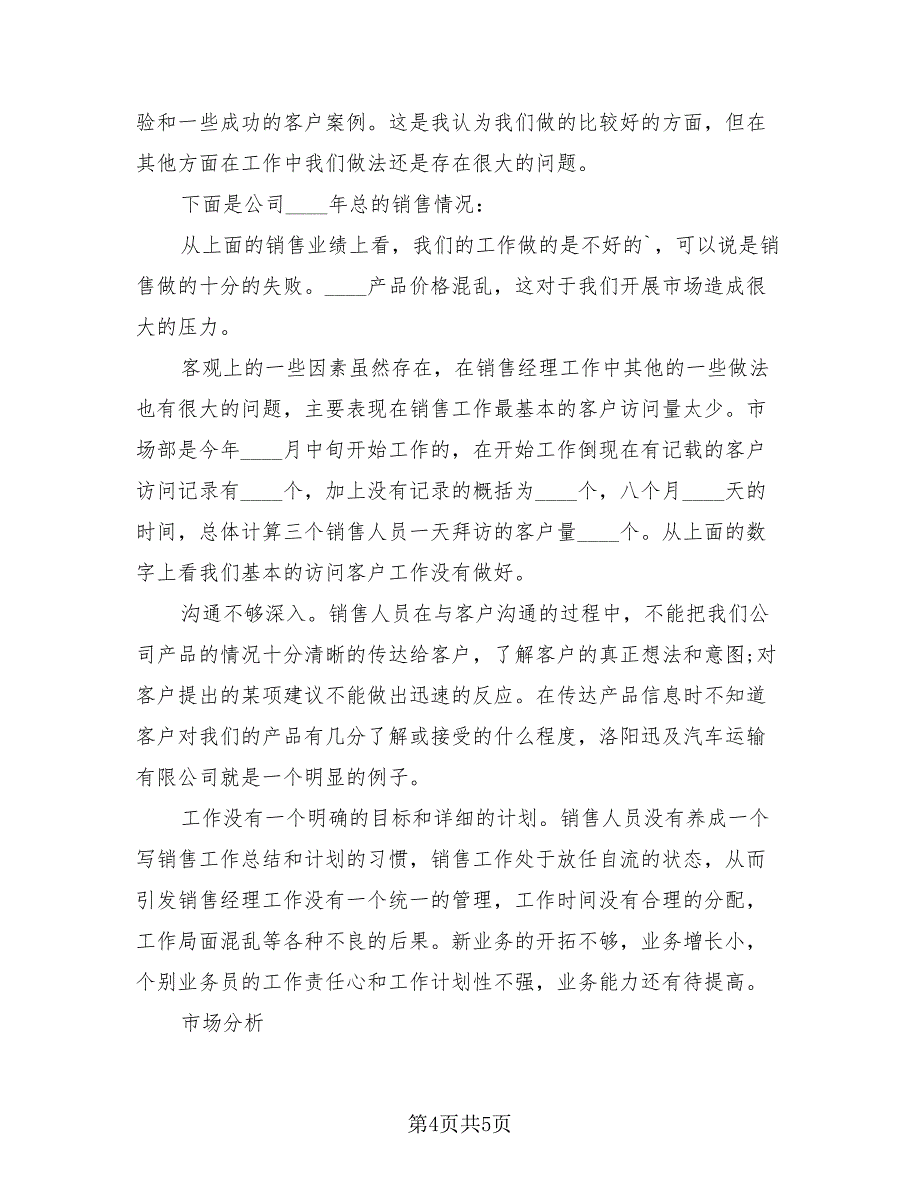 验和一些成功的客户案例。这是我认为我们做的比较好的方面，但在
其他方面在工作中我们做法还是存在很大的问题。
下面是公司____年总的销售情况：
从上面的销售业绩上看，我们的工作做的是不好的`，可以说是销
售做的十分的失败。____产品价格混乱，这对于我们开展市场造成很
大的压力。
客观上的一些因素虽然存在，在销售经理工作中其他的一些做法
也有很大的问题，主要表现在销售工作最基本的客户访问量太少。市
场部是今年____月中旬开始工作的，在开始工作倒现在有记载的客户
访问记录有____个，加上没有记录的概括为____个，八个月____天的
时间，总体计算三个销售人员一天拜访的客户量____个。从上面的数
字上看我们基本的访问客户工作没有做好。
沟通不够深入。销售人员在与客户沟通的过程中，不能把我们公
司产品的情况十分清晰的传达给客户，了解客户的真正想法和意图;对
客户提出的某项建议不能做出迅速的反应。在传达产品信息时不知道
客户对我们的产品有几分了解或接受的什么程度，洛阳迅及汽车运输
有限公司就是一个明显的例子。
工作没有一个明确的目标和详细的计划。销售人员没有养成一个
写销售工作总结和计划的习惯，销售工作处于放任自流的状态，从而
引发销售经理工作没有一个统一的管理，工作时间没有合理的分配，
工作局面混乱等各种不良的后果。新业务的开拓不够，业务增长小，
个别业务员的工作责任心和工作计划性不强，业务能力还有待提高。
市场分析
第4页共5页